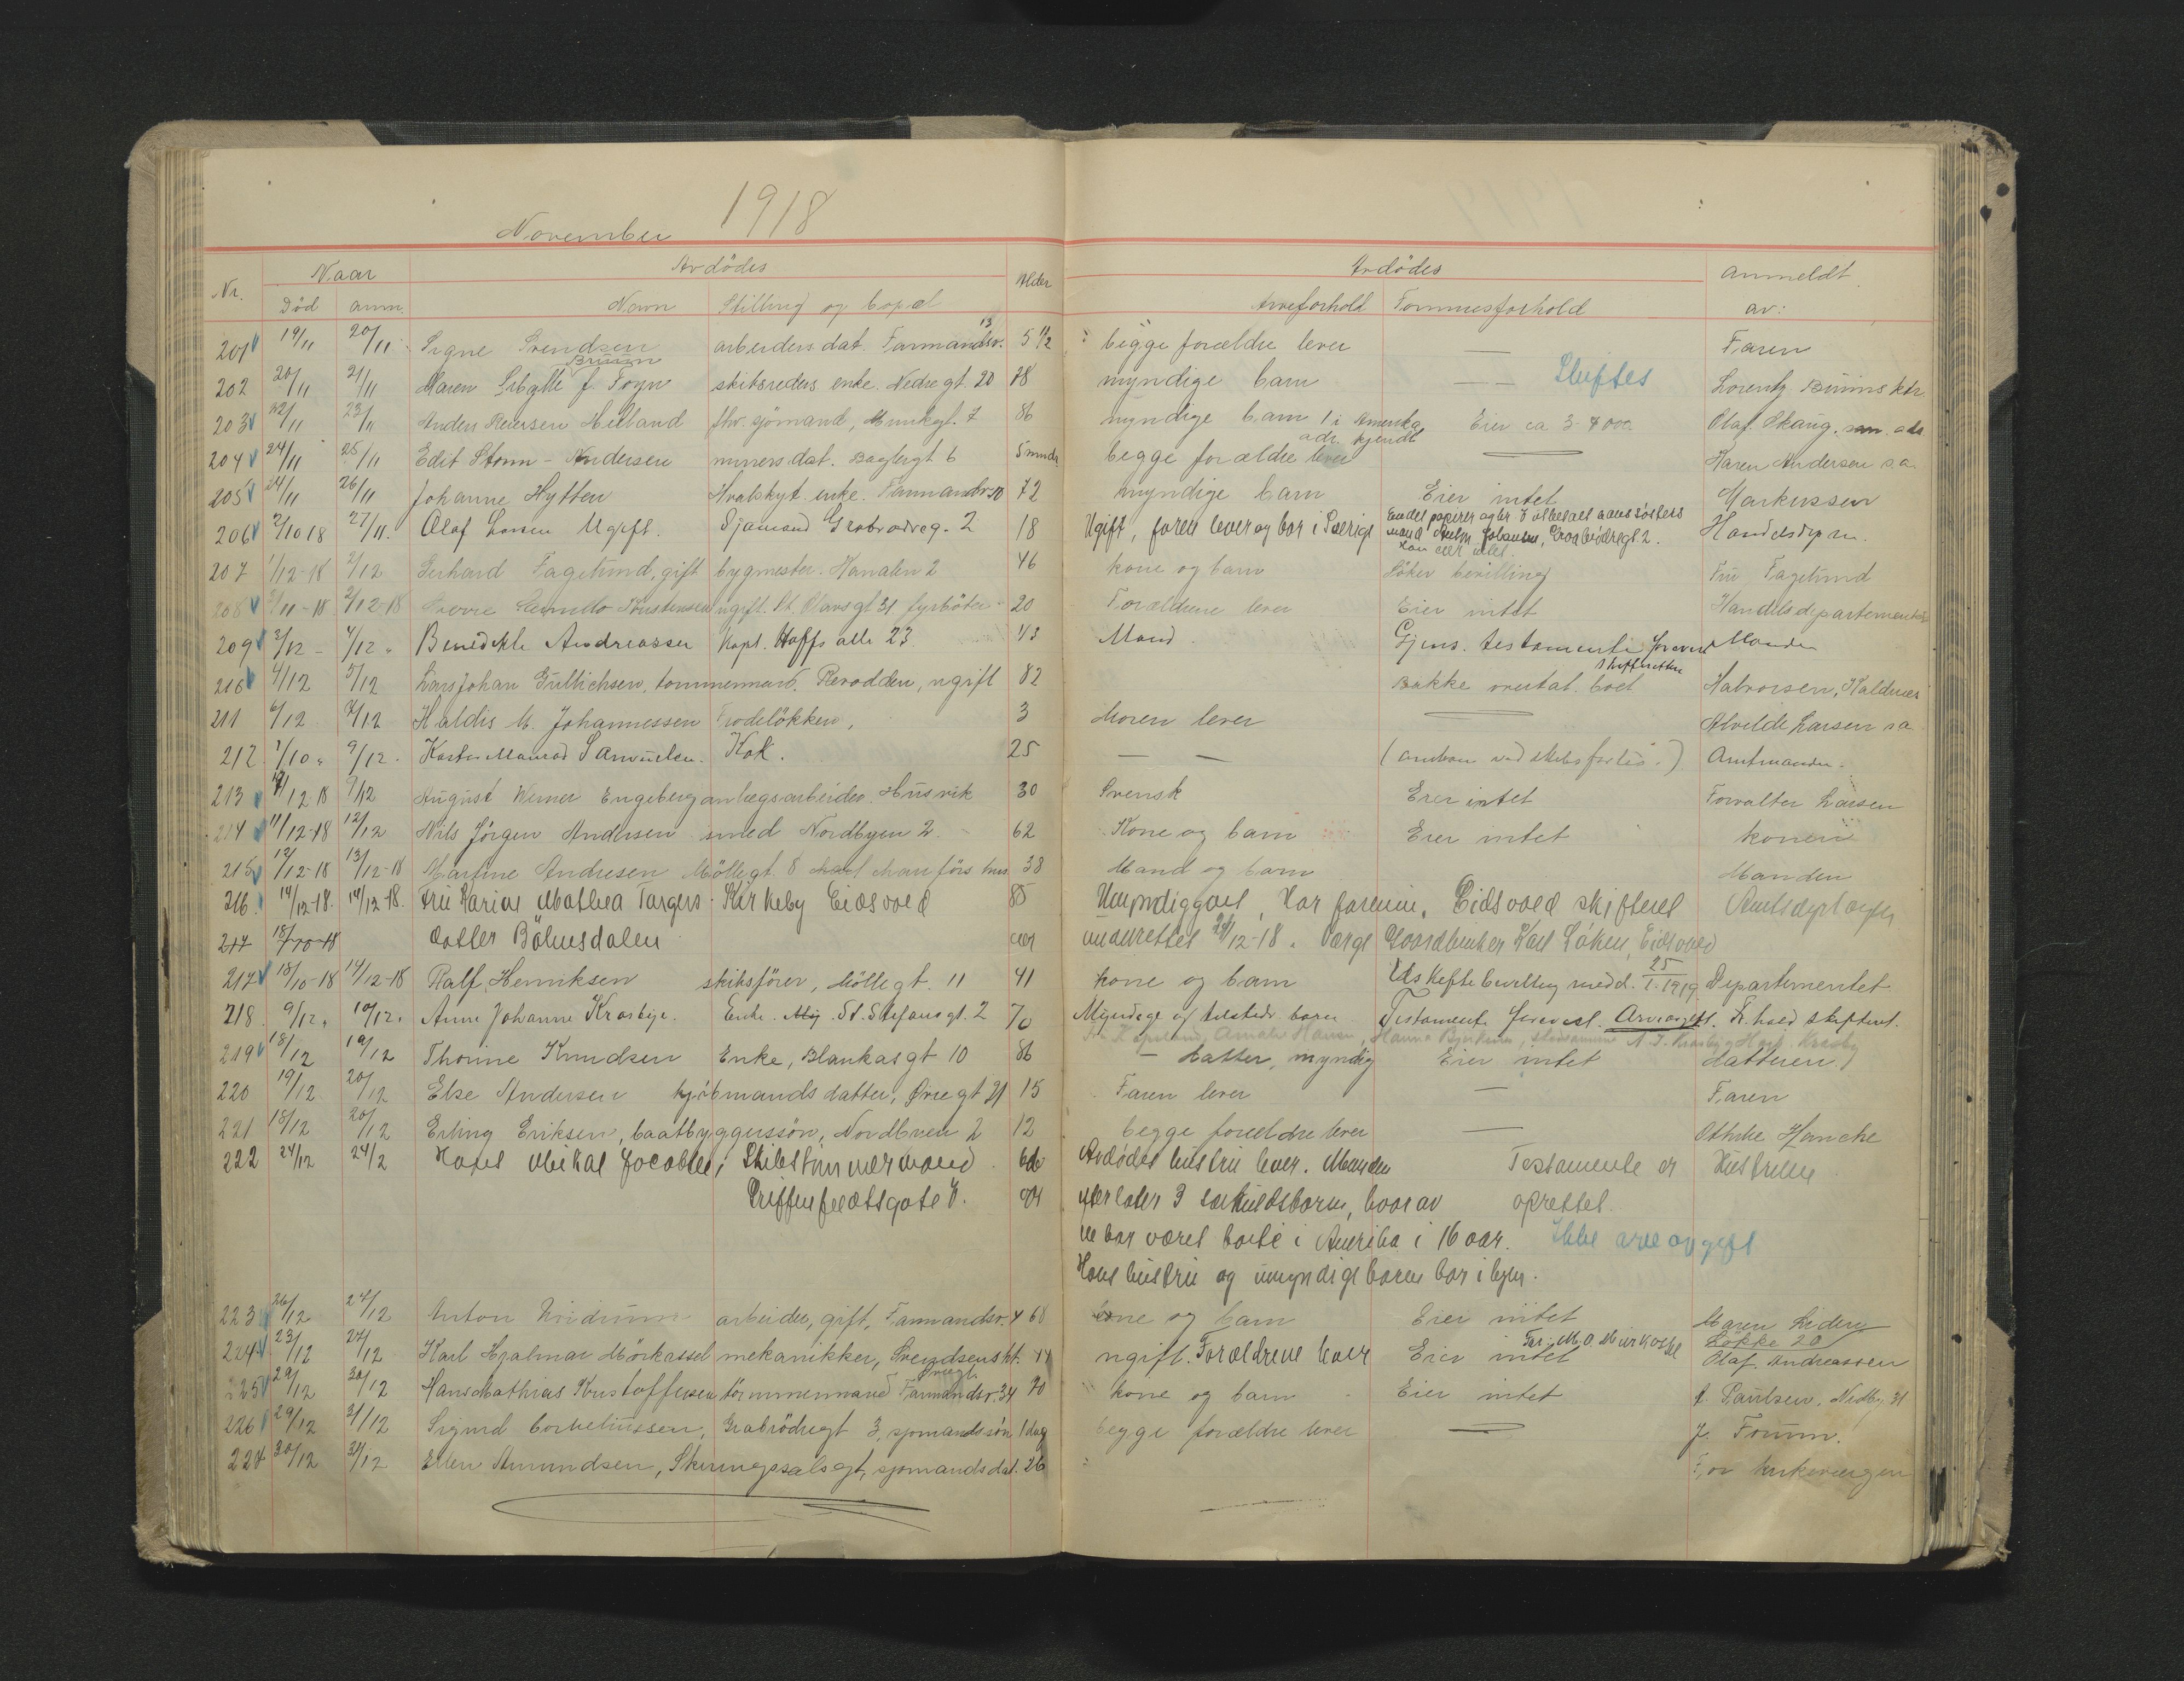 1918
November
Nr. Naar Avdödes Alder Avdödes Anmeldt
Död anm. Navn Stilling og bopæl Arveforhold Formuesforhold av:
201 19/11 20/11 Signe Svendsen arbeiders dat. Farmandsv. 13 5 1/2 begge forældre lever — Faren
Bruun
202 20/11 21/11 Maren Sibylle f. Foyn skibsreders enke. Nedregt. 20 78 myndige barn — Skiftes Lorentz Bruuns ktr
203 22/11 23/11 Anders Reiersen Helland fhv. sjömand, Munkegt. 7 86 myndige barn 1 i Amerika Eier ca 3-4000 Olaf Skaug,
adr. kjendt
204 24/11 25/11 Edit Storm-Andersen murers dat. Baglergt 6 5 mndr begge forældre lever — Karen Andersen s.a.
205 24/11 26/11 Johanne Hytten Hvalskyt. enke. Farmandsv 50 72 myndige barn Eier intet Markussen
206 2/10 18 27/11. Olaf Larsen Ugift. Sjömand Graabrödreg. 2 18 Ugift, foreld lever og bor i Sverige Endel papirer og kr. utbetalt hans søsters Handelsdep.
mand Johansen, Graabrödregt 2.
Han eier intet.
207 1/12-18 2/12 Gerhard Fagelund, gift bygmester. Kanalen 2 46 kone og barn Söker bevilling Fru Fagelund
208 2/11-18 2/12-18 Sverre Kristensen ugift. St. Olavsgt 31 fyrböter 20 Forældrene lever Eier intet Handelsdepartementet
209 3/12 - 4/12 " Benedikte Andreassen Kapt. Hoffs alle 23. 43 Mand. Gjens. testamente forevist Manden
skifteretten
210 4/12 5/12 Lars Johan Gullichsen, tömmermand. Rerodden, ugift 82 Bakke boet Halvorsen, Kaldnes
211 6/12 7/12 Haldis M. Johannessen Frodelökken, 3 Moren lever — Alvilde Larsen s.a.
212 1/10 " 9/12 - Samuelsen. Kok. 25 — — (omkom ved skibsforlis.) Amtmanden.
213 7/12 18 9/12 August Werner Engeberg anlægsarbeider. Husvik 30 Svensk Eier intet Forvalter Larsen
214 11/12-18 12/12 Nils Jörgen Andersen smed Nordbyen 2. 62 Kone og barn Eier intet konen
215 12/12-18 13/12-18 Martine Andresen Möllegt. 8 hus 38 Mand og barn Manden
216. 14/12-18. 14/12-18. Fru Karine Mathea Kirkeby Eidsvold 85 Umyndiggjort, Har formue, Eidsvold skifteret
217 18/10-18 datter Böhnsdalen aar underrettet 24/12-18. Verge Gaardbruker Karl Löken, Eidsvold
217 18/10-18 14/12-18 Ralf Henriksen skibsförer, Möllegt. 11 41 kone og barn Uskiftebevilling medd. 25/1-1919 Departementet
218. 9/12 " 10/12 " Anne Johanne Krosbye. Enke. St. Stefansgt. 2 70 Myndige og tilstede barn Testamente forevist. Arveavgift.
219 18/12 19/12 Thorine Knudsen Enke, Blankasgt 10 86 - datter, myndig Eier intet datteren
220 19/12 20/12 Else Andersen kjöbmands datter, Övregt 21 15 Faren lever — Faren
221 18/12 20/12 Erling Eriksen, baatbyggersön, Nordbyen 2 12 begge forældre lever — Hanche
222 24/12 24/12 Hans Mikal Jacobsen Skibstömmermand. 66 Avdödes hustru lever. Manden Testamente er Hustruen
Griffenfeldtsgate 8. aar efterlater 3 særkuldsbarn, hvorav oprettet.
en har været borte i Amerika i 16 aar. Ikke arveavgift
Hans hustru og umyndige barn bor i byen.
223 26/12 27/12 Anton arbeider, gift, Farmandsv. 4 68 kone og barn Eier intet Maren
Lökke 20
224 23/12 27/12 Karl Hjalmar Mörkassel mekanikker, Svendsens ugift. Forældrene lever Eier intet Olaf Andreassen
225 29/12 30/12 Hans Mathias Kristoffersen tömmermand Farmandsv. 34 70 kone og barn Eier intet Paulsen, Nedby. 31
226 29/12 31/12 Sigurd Corneliussen, Graabrödregt 3, sjömandssön 1 dag begge forældre lever — J. Foruun.
227 30/12 31/12 Ellen Amundsen, Skiringssalsgt, sjömands dat. 26 " For kirkevergen